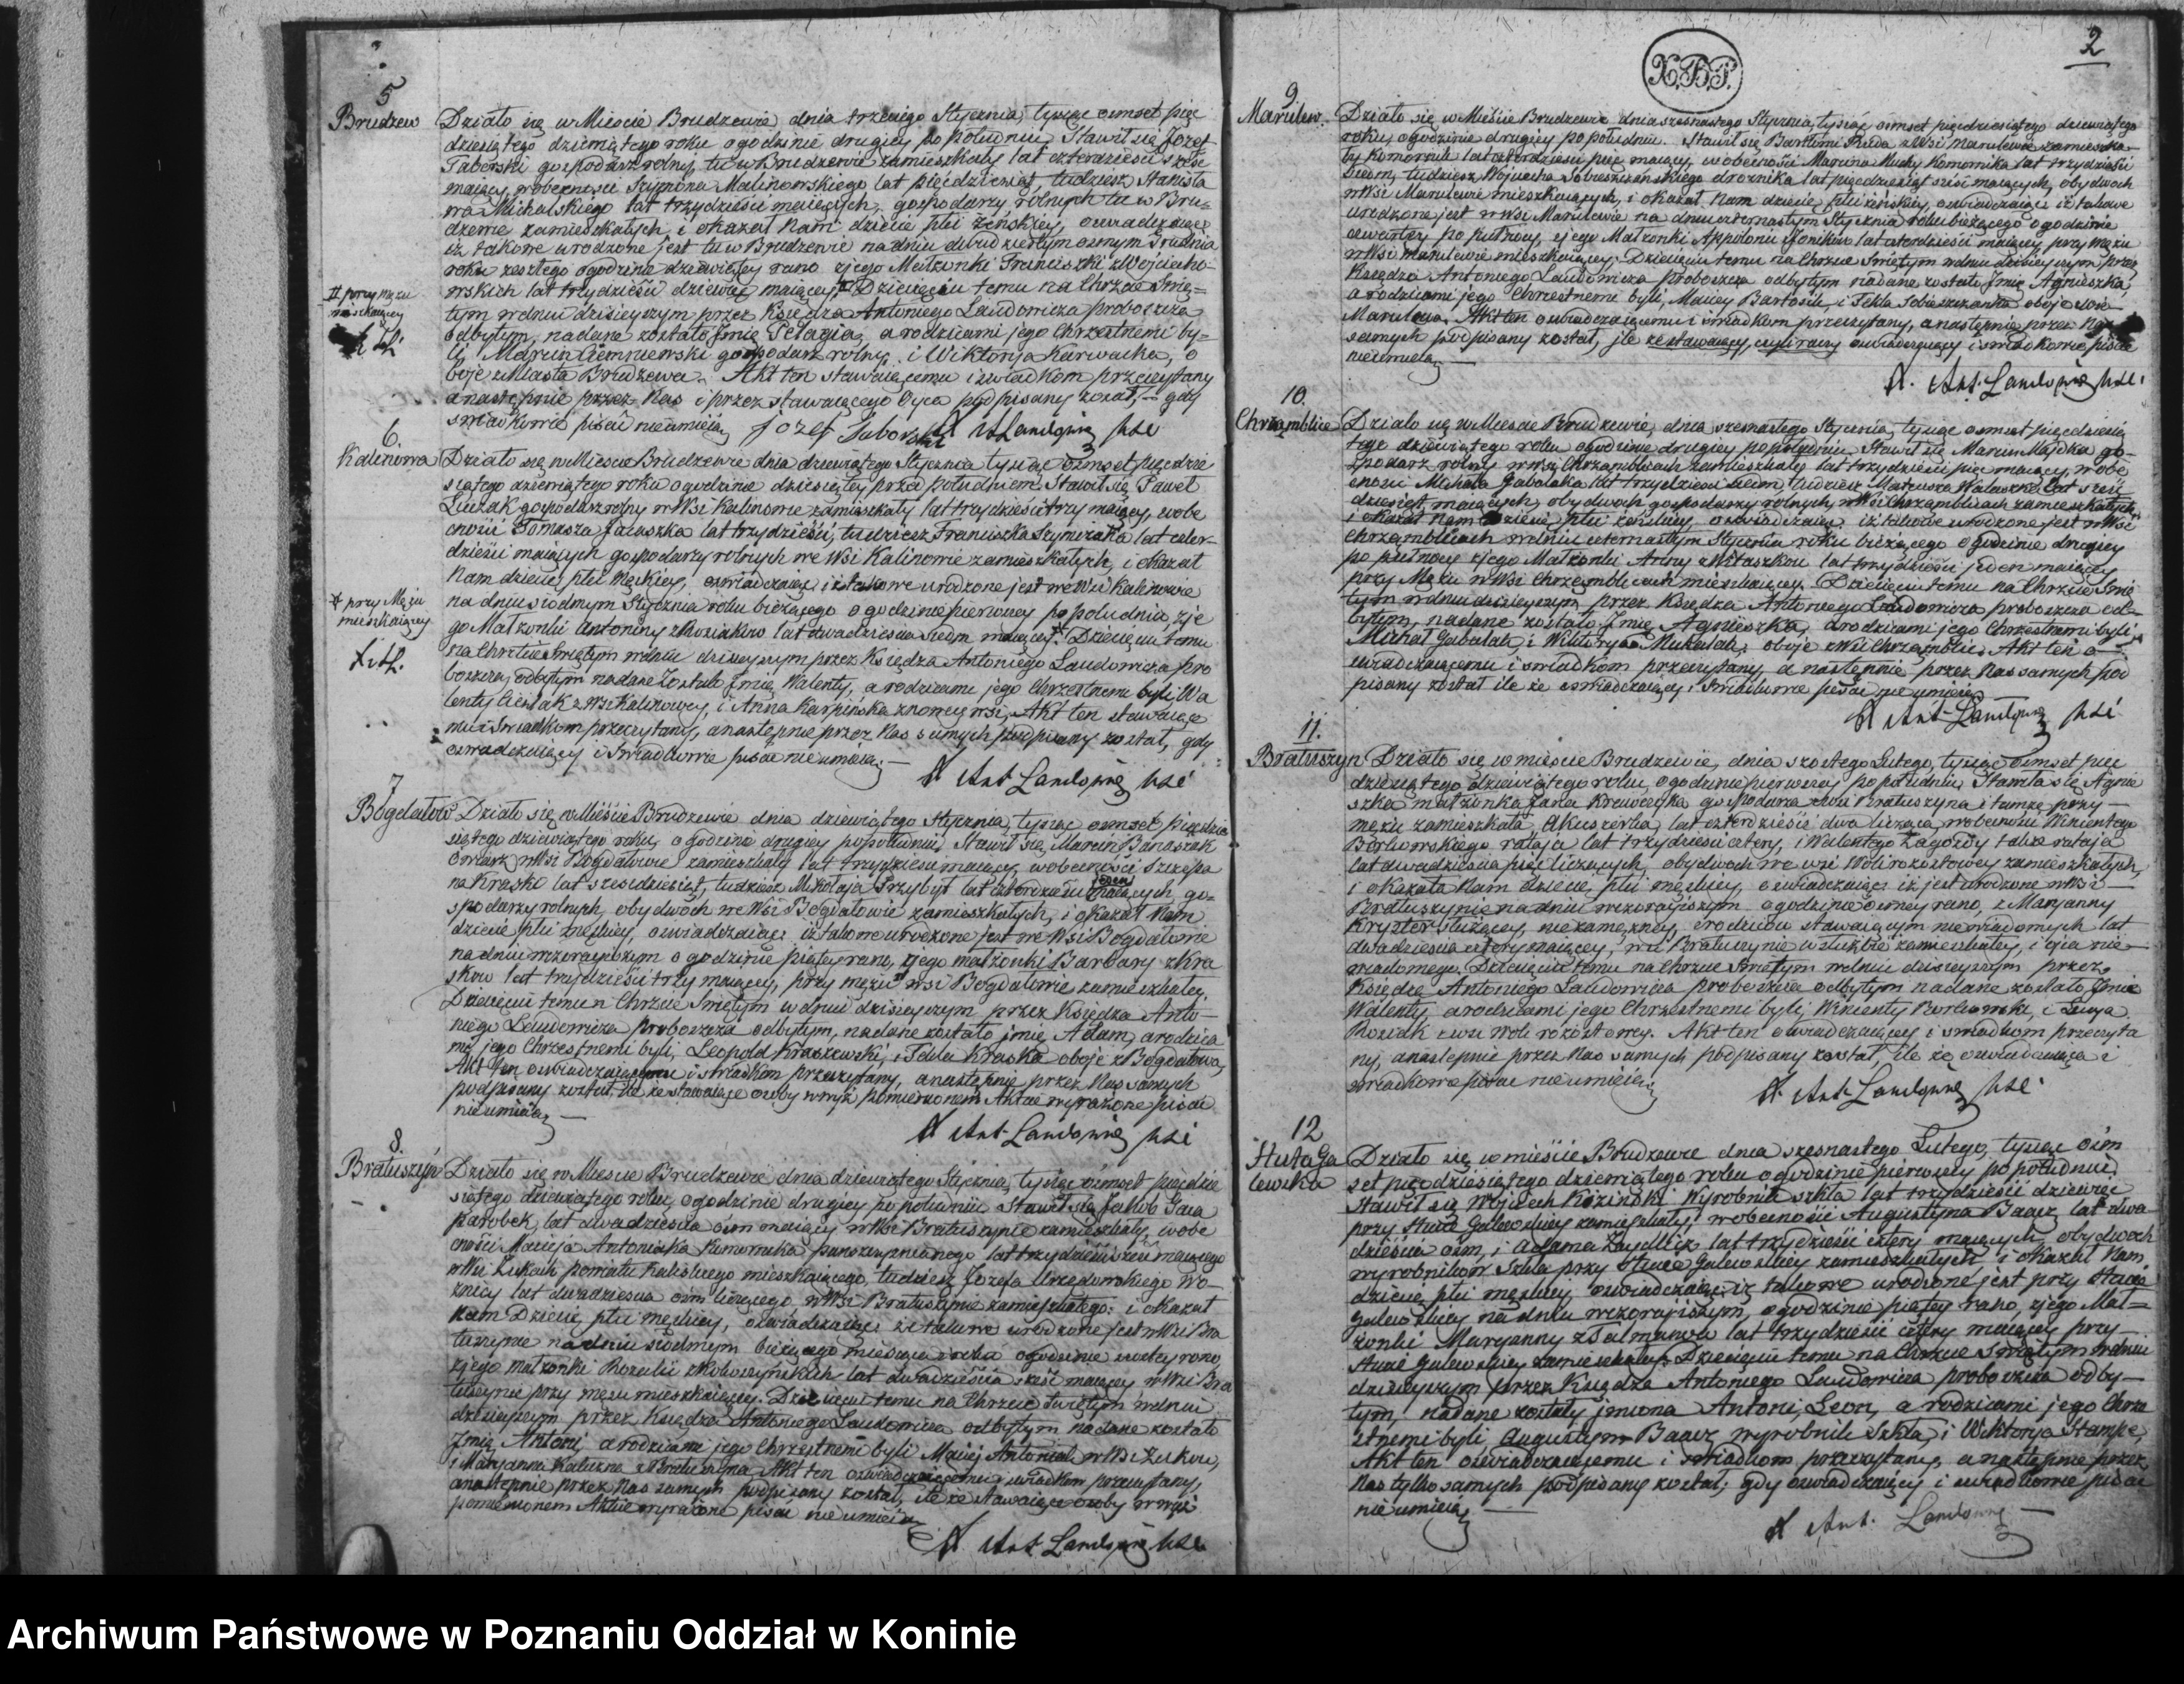 5
Brudzew
Działo się w Mieście Brudzewie dnia trzeciego Stycznia, tysiąc ośmset pięć
dziesiątego dziewiątego roku o godzinie drugiej po południu, Stawił się Józef
Taborski gospodarz rolny, tu w Brudzewie zamieszkały lat czterdzieści sześć
maiący, w obecności Szymona Malinowskiego lat pięćdziesiąt, tudzież Stanisła
wa Michalskiego lat trzydzieści maiących, gospodarzy rolnych tu w Bru-
dzewie zamieszkałych, i okazał Nam dziecię płci żeńskiej, oświadczając
iż takowe urodzone jest tu w Brudzewie na dniu dwudziestym osmym Grudnia
roku zeszłego o godzinie dziewiątej rano z jego Małżonki Franciszki z Wojciecho-
wskich lat trzydzieści dziewięć maiącej # Dziecięciu temu na Chrzcie Świę-
tym w dniu dzisiejszym przez Księdza Antoniego Laudowicza proboszcza
odbytym, nadane zostało Imię Pelagia, a rodzicami jego Chrzestnemi by-
li, Marcin Ciemniewski gospodarz rolny, i Wiktoryja Karwacka, o
boje z Miasta Brudzewa. Akt ten stawaiącemu i świadkom przeczytany
a następnie przez Nas i przez stawaiącego Oyca podpisany został, gdy
świadkowie pisać nie umieją
# przy Mężu
mieszkaiącey
Józef Taborski X Ant Laudowicz
6.
Kalinowa
Działo się w Mieście Brudzewie dnia dziewiątego Stycznia tysiąc ośmset pięćdzie
siątego dziewiątego roku o godzinie dziesiątej przed południem, Stawił się Paweł
Luczak gospodarz rolny w Wsi Kalinowie zamieszkały lat trzydzieści trzy maiący, w obe
cności Tomasza Jałuszka lat trzydzieści, tudzież Franciszka Szymczaka lat czter-
dzieści maiących gospodarzy rolnych we Wsi Kalinowie zamieszkałych, i okazał
Nam dziecię płci męskiej, oświadczając iż takowe urodzone jest we Wsi Kalinowie
na dniu siodmym Stycznia roku bieżącego o godzinie pierwszej po południu, z je
go Małżonki Antoniny z Woźniaków lat dwadzieścia siedm maiącej * Dziecięciu temu
na Chrzcie Świętym w dniu dzisiejszym przez Księdza Antoniego Laudowicza pro
boszcza, odbytym nadane zostało Imię Walenty, a rodzicami jego Chrzestnemi byli, Wa
lenty Cieślak z Wsi Kalinowy, i Anna Karpińska z nowej wsi, Akt ten stawaiące
mu i świadkom przeczytany, a następnie przez Nas samych podpisany został, gdy
oświadczający i świadkowie pisać nie umieją
* przy Mężu
mieszkaiącey
X Ant Laudowicz
7
Bogdałów
Działo się w Mieście Brudzewie dnia dziewiątego Stycznia, tysiąc ośmset pięćdzie
siątego dziewiątego roku, o godzinie drugiej po południu, Stawił się Marcin Banaszak
owczarz w Wsi Bogdałowie zamieszkały lat trzydzieści maiący, w obecności Szczepa
na Kraske lat sześćdziesiąt, tudzież Mikołaja Przybył lat czterdzieści jeden maiących go-
spodarzy rolnych, obydwóch we Wsi Bogdałowie zamieszkałych, i okazał Nam
dziecię płci męskiej, oświadczając iż takowe urodzone jest we Wsi Bogdałowie
na dniu wczorajszym o godzinie piątej rano, z jego małżonki Barbary z Kra
sków lat trzydzieści trzy maiącej, przy mężu w Wsi Bogdałowie zamieszkałej
Dziecięciu temu n Chrzcie Świętym w dniu dzisiejszym przez Księdza Anto-
niego Laudowicza proboszcza odbytym, nadane zostało imię Adam, a rodzica
mi jego Chrzestnemi byli, Leopold Kraszewski, i Tekla Kraska oboje z Bogdałowa,
Akt ten oświadczającemu i świadkom przeczytany, a następnie przez Nas samych
podpisany został, ile że stawaiące osoby w niżej pomienionem Akcie wyrażone pisać
nie umieją
X Ant Laudowicz
8.
Bratuszyn
Działo się w Mieście Brudzewie dnia dziewiątego Stycznia, tysiąc ośmset pięćdzie
siątego dziewiątego roku, o godzinie drugiej po południu Stawił się Jakub Gaca
parobek, lat dwadzieścia ośm maiący w Wsi Bratuszynie zamieszkały, w obe
cności Macieja Antoniaka Komornika lat trzydzieści sześć maiącego
w Wsi Żukach powiatu Kaliskiego mieszkaiącego, tudzież Józefa Urzędowskiego Wo-
źnicy lat dwadzieścia ośm liczącego w Wsi Bratuszynie zamieszkałego: i okazał
Nam Dziecię płci męskiej, oświadczając że takowe urodzone jest w Wsi Bra
tuszynie na dniu siodmym bieżącego miesiąca i roku o godzinie rano,
z jego małżonki Rozalii lat dwadzieścia sześć maiącej w Wsi Bra
tuszynie przy mężu mieszkaiącej. Dziecięciu temu na Chrzcie Świętym w dniu
dzisiejszym przez Księdza Antoniego Laudowicza odbytym nadane zostało
Imię Antoni, a rodzicami jego Chrzestnemi byli Maciej Antoniak w Wsi Żuków,
i Maryanna Kałużna z Bratuszyna, Akt ten oświadczającemu i świadkom przeczytany,
a następnie przez Nas samych podpisany został, ile że stawaiące osoby w niżej
pomienionem Akcie wyrażone pisać nie umieją
X Ant Laudowicz
2
X.B.P.
9
Marulew.
Działo się w Mieście Brudzewie dnia szesnastego Stycznia, tysiąc ośmset pięćdziesiątego dziewiątego
roku, o godzinie drugiej po południu. Stawił się Bartłomi Ruda w Wsi Marulewie zamieszka-
ły Komornik lat czterdzieści pięć maiący, w obecności Marcina Muchy Komornika lat trzydzieści
siedm, tudzież Wojciecha Sobieszczańskiego drożnika lat pięćdziesiąt sześć maiących, obydwoch
w Wsi Marulewie mieszkaiących, i okazał Nam dziecię płci żeńskiej, oświadczając iż takowe
urodzone jest w Wsi Marulewie na dniu czternastym Stycznia roku bieżącego o godzinie
czwartej po północy, z jego Małżonki Appolonii Joników lat czterdzieści maiącej, przy mężu
w Wsi Marulewie mieszkaiącej; Dziecięciu temu na Chrzcie Świętym w dniu dzisiejszym przez
Księdza Antoniego Laudowicza Proboszcza odbytym nadane zostało Imię Agnieszka,
a rodzicami jego Chrzestnemi byli, Maciey Bartosik, i Tekla Sobieszczanka oboje z wsi
Marulewa. Akt ten oświadczającemu i świadkom przeczytany, a następnie przez Nas
samych podpisany został, ile że stawaiący, czyli raczy oświadczający i świadkowie pisać
nie umieją
X. Ant. Laudowicz
10.
Chrząmblice
Działo się w Mieście Brudzewie, dnia szesnastego Stycznia, tysiąc ośmset pięćdziesią
tego dziewiątego roku o godzinie drugiej po południu Stawił się Marcin Majdka go-
spodarz rolny w wsi Chrząmblicach zamieszkały lat trzydzieści pięć maiący, w obe
cności Michała Gabalaka lat trzydzieści siedm, tudzież Mateusza Walaszka lat sześć
dziesiąt maiących, obydwoch gospodarzy rolnych w Wsi Chrząmblicach zamieszkałych,
i okazał Nam Dziecię płci żeńskiej, oświadczając, iż takowe urodzone jest w Wsi
Chrząmblicach w dniu czternastym Stycznia roku bieżącego o godzinie drugiej
po północy z jego Małżonki Anny z Witaszków lat trzydzieści jeden maiącej
przy Mężu w Wsi Chrząmblicach mieszkaiącej. Dziecięciu temu na Chrzcie Świę
tym w dniu dzisiejszym przez Księdza Antoniego Laudowicza proboszcza od-
bytym, nadane zostało Imię Agnieszka, a rodzicami jego Chrzestnemi byli
Michał Gabalak, i Wiktorya Michalak, oboje z Wsi Chrząmblic, Akt ten o-
świadczającemu i świadkom przeczytany, a następnie przez Nas samych pod
pisany został ile że oświadczający i świadkowie pisać nie umieją
X Ant Laudowicz
11.
Bratuszyn
Działo się w mieście Brudzewie, dnia szóstego Lutego, tysiąc ośmset pięć
dziesiątego dziewiątego roku, o godzinie pierwszej po południu, Stawiła się Agnie
szka małżonka Jana Krawczyka gospodarza z wsi Bratuszyna i tamże przy
mężu zamieszkała, Akuszerka, lat czterdzieści dwa licząca, w obecności Wincentego
Borkowskiego rataja lat trzydzieści cztery, i Walentego Zagozdy także rataja
lat dwadzieścia pięć liczących, obydwoch we wsi Woli rożostowej zamieszkałych,
i okazała Nam dziecię płci męskiej, oświadczając iż jest urodzone w Wsi
Bratuszynie na dniu wczorajszym o godzinie osmej rano, z Maryanny
Kryszter służącej, niezamężnej, z rodziców stawającym niewiadomych lat
dwadzieścia cztery maiącej, w wsi Bratuszynie w służbie zamieszkałej, i ojca nie-
wiadomego. Dziecięciu temu na Chrzcie Świętym w dniu dzisiejszym przez
Księdza Antoniego Laudowicza proboszcza odbytym nadane zostało Imię
Walenty, a rodzicami jego Chrzestnemi byli, Wincenty Borkowski, i Łucya
Woźniak z wsi Woli rożostowej. Akt ten oświadczającej i świadkom przeczyta
ny, a następnie przez Nas samych podpisany został, ile że oświadczająca i
świadkowie pisać nie umieją
X. Ant. Laudowicz
12
Huta Ga
lewska
Działo się w mieście Brudzewie dnia szesnastego Lutego, tysiąc ośm
set pięćdziesiątego dziewiątego roku o godzinie pierwszej po południu,
Stawił się Wojciech Koziński Wyrobnik szkła lat trzydzieści dziewięć
przy Hucie Galewskiej zamieszkały, w obecności Augustyna Baacz lat dwa
dzieścia ośm, i Adama Zaydlicz lat trzydzieści cztery maiących, obydwoch
wyrobników Szkła przy Hucie Galewskiej zamieszkałych, i okazał Nam
dziecię płci męskiej, oświadczając iż takowe urodzone jest przy Hucie
Galewskiej na dniu wczorajszym, o godzinie piątej rano, z jego Mał-
żonki Maryanny z Salmanów lat trzydzieści cztery maiącej przy
Hucie Galewskiej zamieszkałej; Dziecięciu temu na Chrzcie Świętym w dniu
dzisiejszym przez Księdza Antoniego Laudowicza proboszcza odby-
tym, nadane zostały imiona Antoni, Leon, a rodzicami jego Chrze
stnemi byli Augustyn Baacz wyrobnik szkła, i Wiktorja Stampe,
Akt ten oświadczającemu i świadkom przeczytany, a następnie przez
Nas tylko samych podpisany został; gdy oświadczający i świadkowie pisać
nie umieją
X Ant. Laudowicz
Archiwum Państwowe w Poznaniu Oddział w Koninie